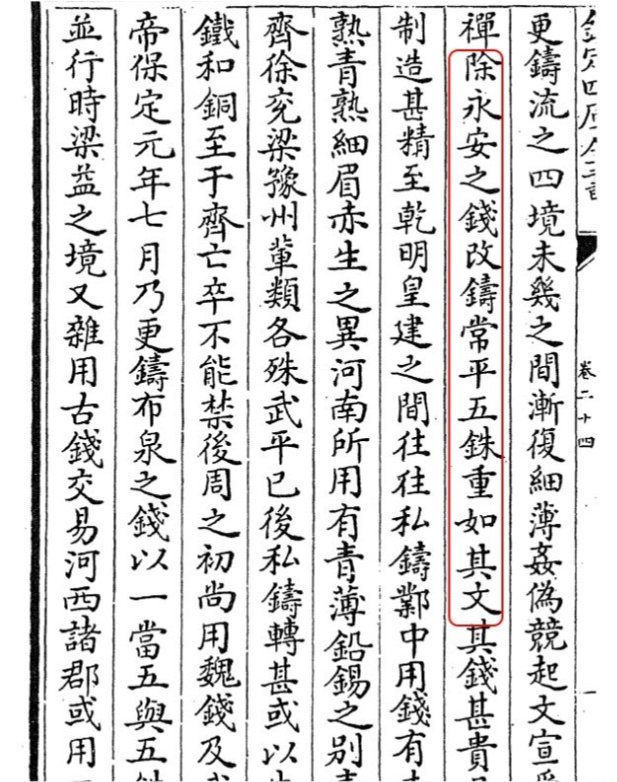 欽定四庫全書
卷二十四
更鑄流之四境未幾之間漸復細薄姦偽競起文宣受
禪除永安之錢改鑄常平五銖重如其文其錢甚貴
制造甚精至乾明皇建之間往往私鑄鄴中用錢有
熟青熟細眉赤生之異河南所用有青薄鉛錫之別青
齊徐兖梁豫州輩類各殊武平已後私鑄轉甚或以生
鐵和銅至于齊亡卒不能禁後周之初尚用魏錢及武
帝保定元年七月乃更鑄布泉之錢以一當五與五銖
並行時梁益之境又雜用古錢交易河西諸郡或用